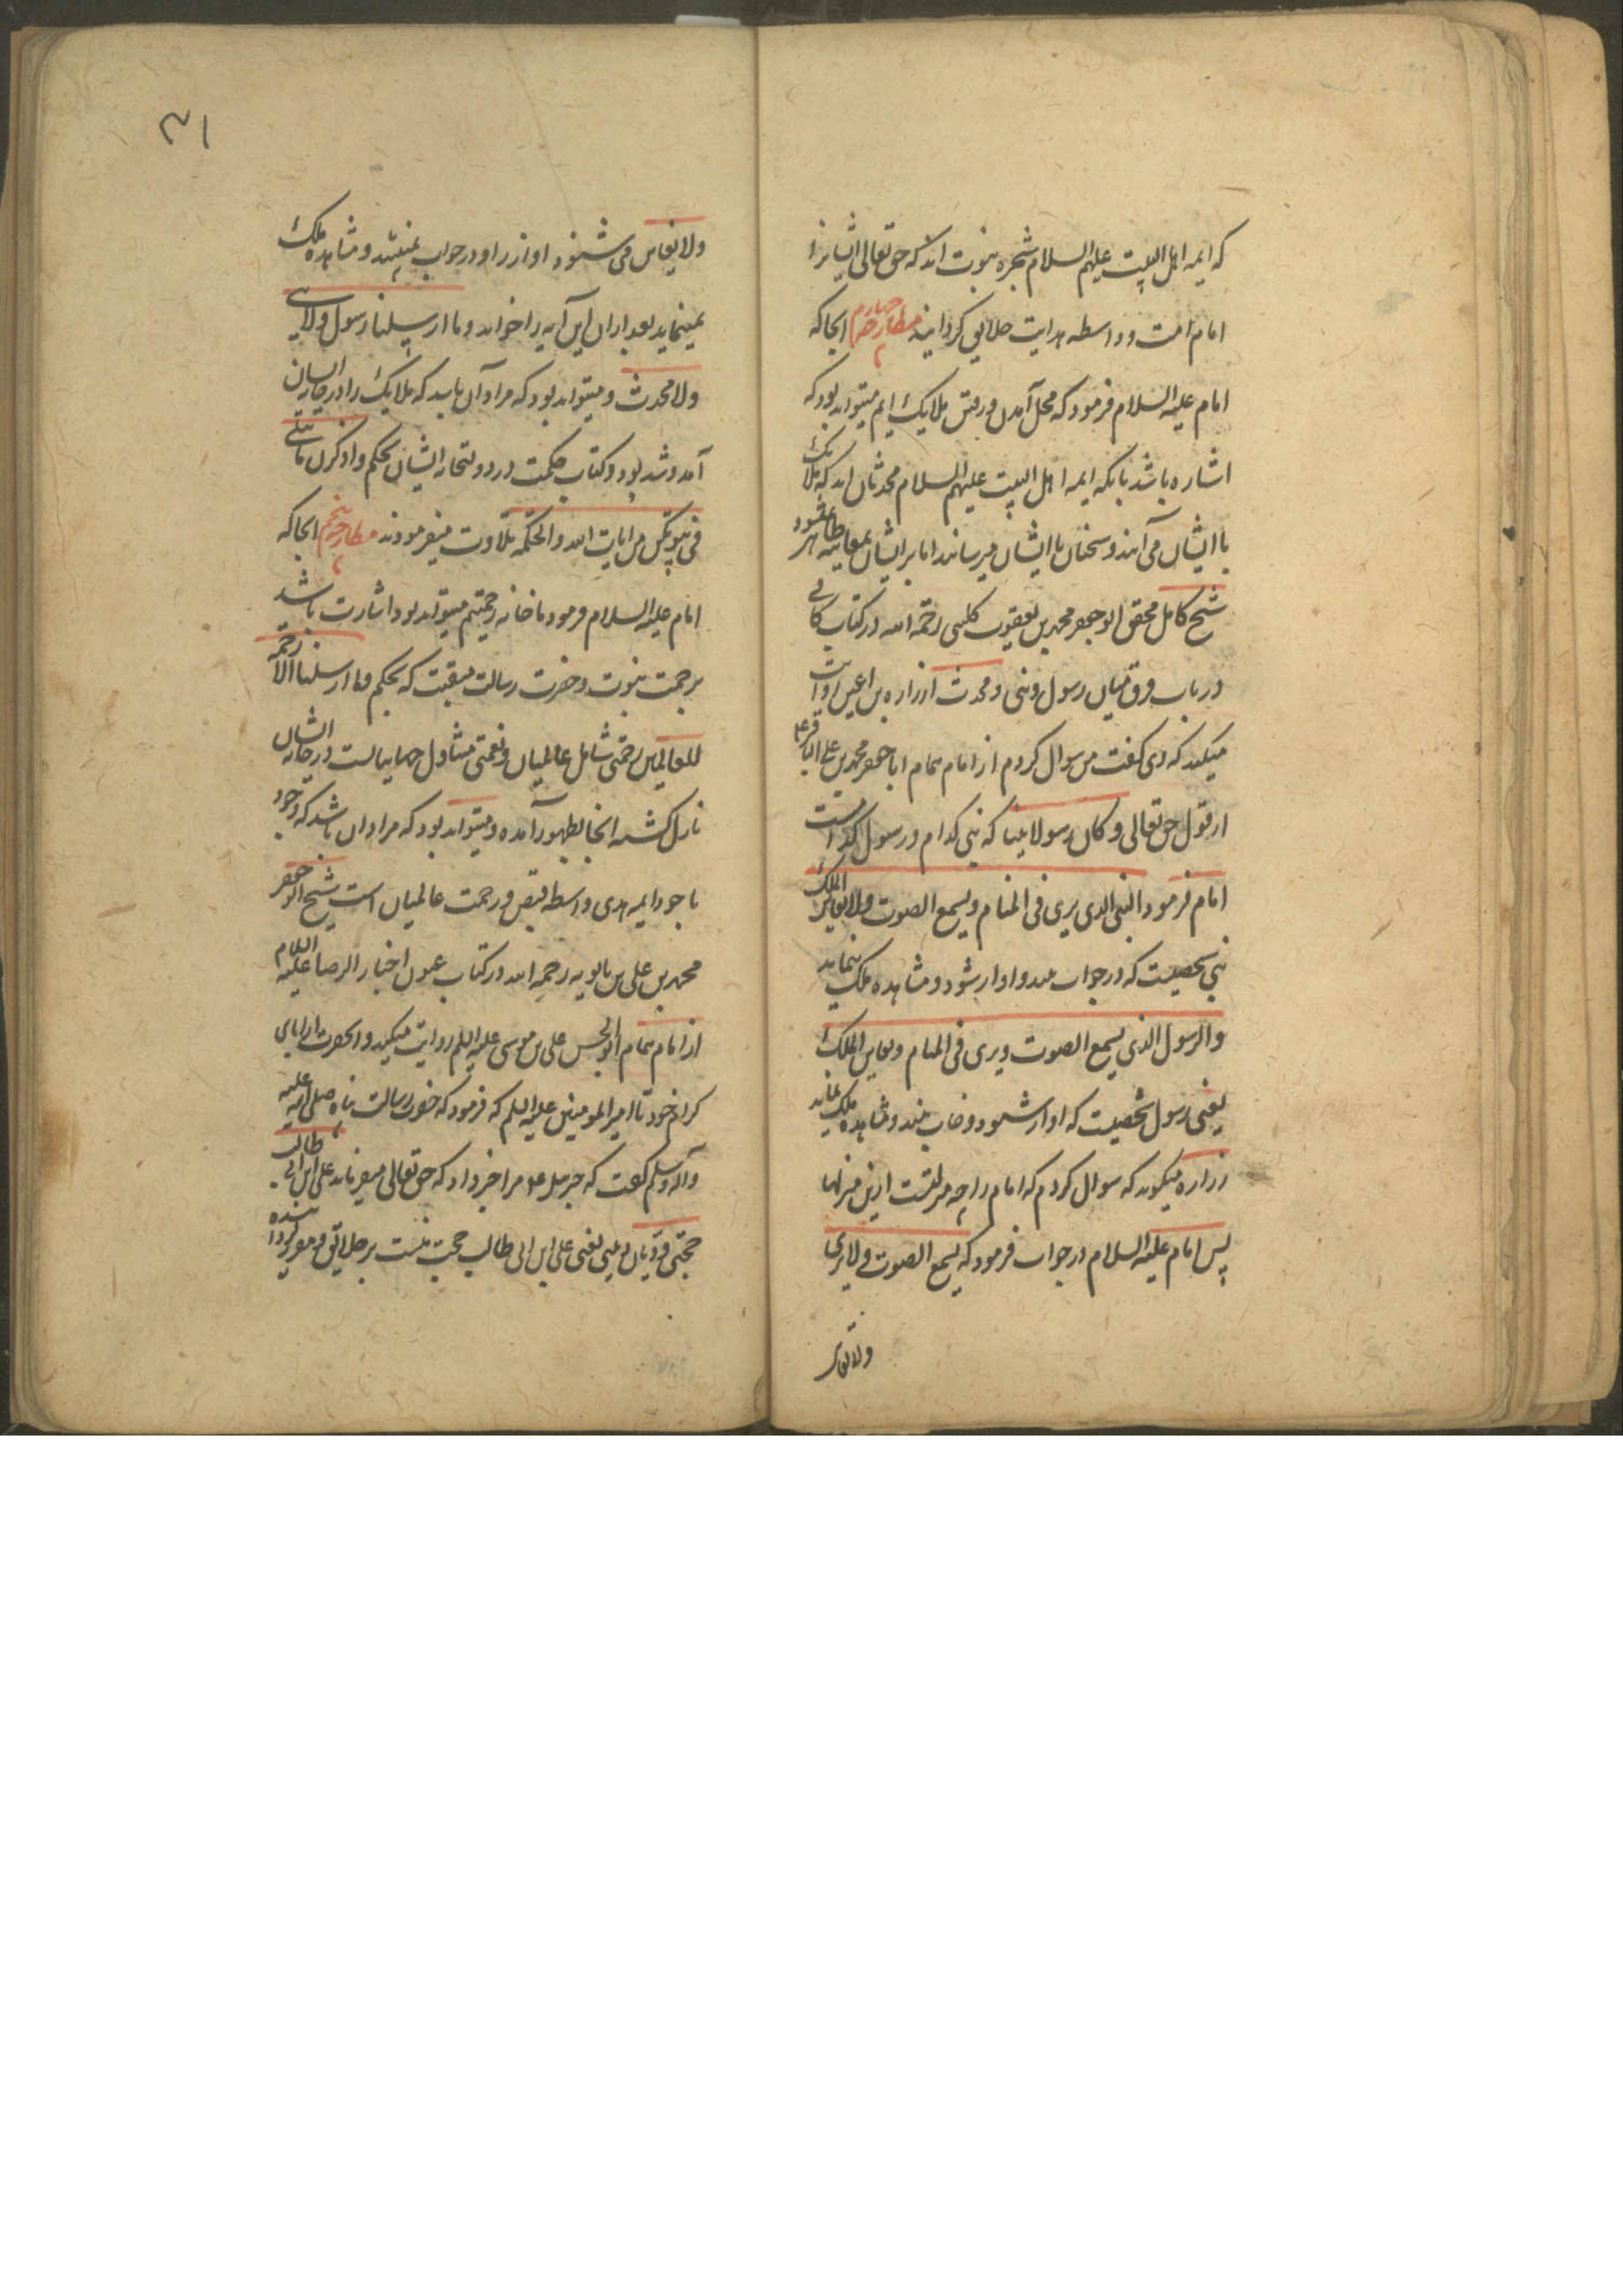 که ایمه اهل البیت علیهم السلام شجره نبوت اند که حق تعالی ایشانرا
امام امت و واسطه هدایت خلایق گردانید مطارحه چهارم انجا که
امام علیه السلام فرمود که محل آمدن و رفتن ملایک ایم میتواند بود که
اشاره باشد بانکه ایمه اهل البیت علیهم السلام محدثان اند که ملایک
با ایشان می آیند و سخنان با ایشان میرسانند اما بر ایشان بمعاینه ظاهر نمیشود
شیخ کامل محقق ابو جعفر محمد بن یعقوب کلینی رحمه الله در کتاب کافی
در باب فرق میان رسول و نبی و محدث از زراره بن اعین روایت
میکند که وی گفت من سوال کردم از امام همام ابا جعفر محمد بن علی الباقر ع
از قول حق تعالی و کان رسولا نبیا که نبی کدام و رسول کدامست
امام فرمود النبی الذی یری فی المنام و یسمع الصوت ولا یعاین الملک
نبی شخصیت که در خواب بیند و اواز شنود و مشاهده ملک ننماید
والرسول الذی یسمع الصوت ویری فی المنام و یعاین الملک
یعنی رسول شخصیت که اواز شنود و خواب بیند و مشاهده ملک نماید
زراره میگوید که سوال کردم که امام را چه منزلتست ازین منزلها
پس امام علیه السلام در جواب فرمود که یسمع الصوت ولا یری
ولا یعاین
۳۱
ولا یعاین می شنود اواز را و در خواب نمیبیند و مشاهده ملک
نمینماید بعد ازان این آیه را خواند وما ارسلنا رسول ولا نبی
ولا محدث و میتواند بود که مراد آن باشد که ملایک را در خانه ایشان
آمد و شد بود و کتاب حکمت در دولتخانه ایشان بحکم واذکرن ما یتلی
فی بیوتکن من ایات الله والحکمة تلاوت میفرمودند مطارحه پنجم انجا که
امام علیه السلام فرمود ما خانه رحمتیم میتواند بود اشارت باشد
برحمت نبوت و حضرت رسالت منقبت که بحکم وما ارسلناک الا رحمة
للعالمین رحمتی شامل عالمیان و نعمتی متناول جهانیانست در خانه ایشان
نازل گشته انجا بظهور آمده و میتواند بود که مراد ان باشد که وجود
با جود ایمه هدی واسطه فیض و رحمت عالمیان است شیخ ابو جعفر
محمد بن علی بن بابویه رحمه الله در کتاب عیون اخبار الرضا علیه السلام
از امام همام ابو الحسن علی بن موسی علیه السلم روایت میکند و انحضرت از ابای
کرام خود تا امیر المومنین علیه السلم که فرمود که حضرت رسالت پناه صلی الله علیه
وآله وسلم گفت که جبرئیل ع مرا خبر داد که حق تعالی میفرماید علی ابن ابی طالب
حجتی و دیان دینی یعنی علی ابن ابی طالب حجت منست بر خلایق و